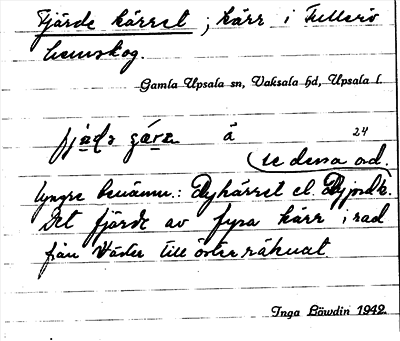 Fjärde kärret, kärr i Fullerö
hemskog.
Gamla Upsala sn, Vaksala hd, Upsala l.
fjäde gärn å 24
(se dessa ord.
Yngre benämn.: Dykärret el. Dyjordk.
Det fjärde av fyra kärr i rad
från väster till öster räknat
Inga Löwdin 1942.